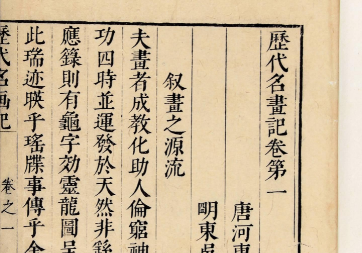 歷代名畫記卷第一
唐河東
明東吳
叙畫之源流
夫畫者成教化助人倫窮神
功四時並運發於天然非繇
應籙則有龜字効靈龍圖呈
此瑞迹映乎瑤牒事傳乎金
歷代名画記
卷之一